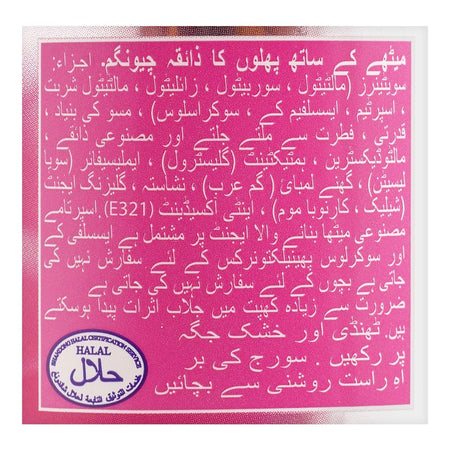 میٹھے کے ساتھ پھلوں کا ذائقہ چیونگم. اجزاء:
سویٹنرز (مالٹیٹول ، سوربیٹول ، زائلیٹول ، مالٹیٹول شربت
، اسپرٹیم ، ایسلفیم کے ، سوکراسلوس) ، مسو کی بنیاد ،
قدرتی ، فطرت سے ملتے جلتے اور مصنوعی ذائقے ،
مالٹوڈیکسٹرین ، ہمتیکٹینٹ (گلیسٹرول) ، ایملیسیفائر (سویا
لیسٹن) ، گھنے لمبائ ( گم عرب) ، نشاستہ ، گلیزنگ ایجنٹ
(شیلیک ، کارنوبا موم) ، اینٹی آکسیڈینٹ (E321).اسپرٹامے
مصنوعی میٹھا بنانے والا ایجنٹ پر مشتمل ہے ایسسلفی کے
اور سوکرلوس پھینیلکٹونرکس کے لئے سفارش نہیں کی
جاتی ہے بچوں کے لئے سفارش نہیں کی جاتی ہے
ضرورت سے زیادہ کھپت میں جلاب اثرات پیدا ہوسکتے
ہیں. ٹھنڈی اور خشک جگہ
پر رکھیں . سورج کی بر
اہ راست روشنی سے بچائیں
SHANDONG HALAL CERTIFICATION SERVICE
HALAL
حلال